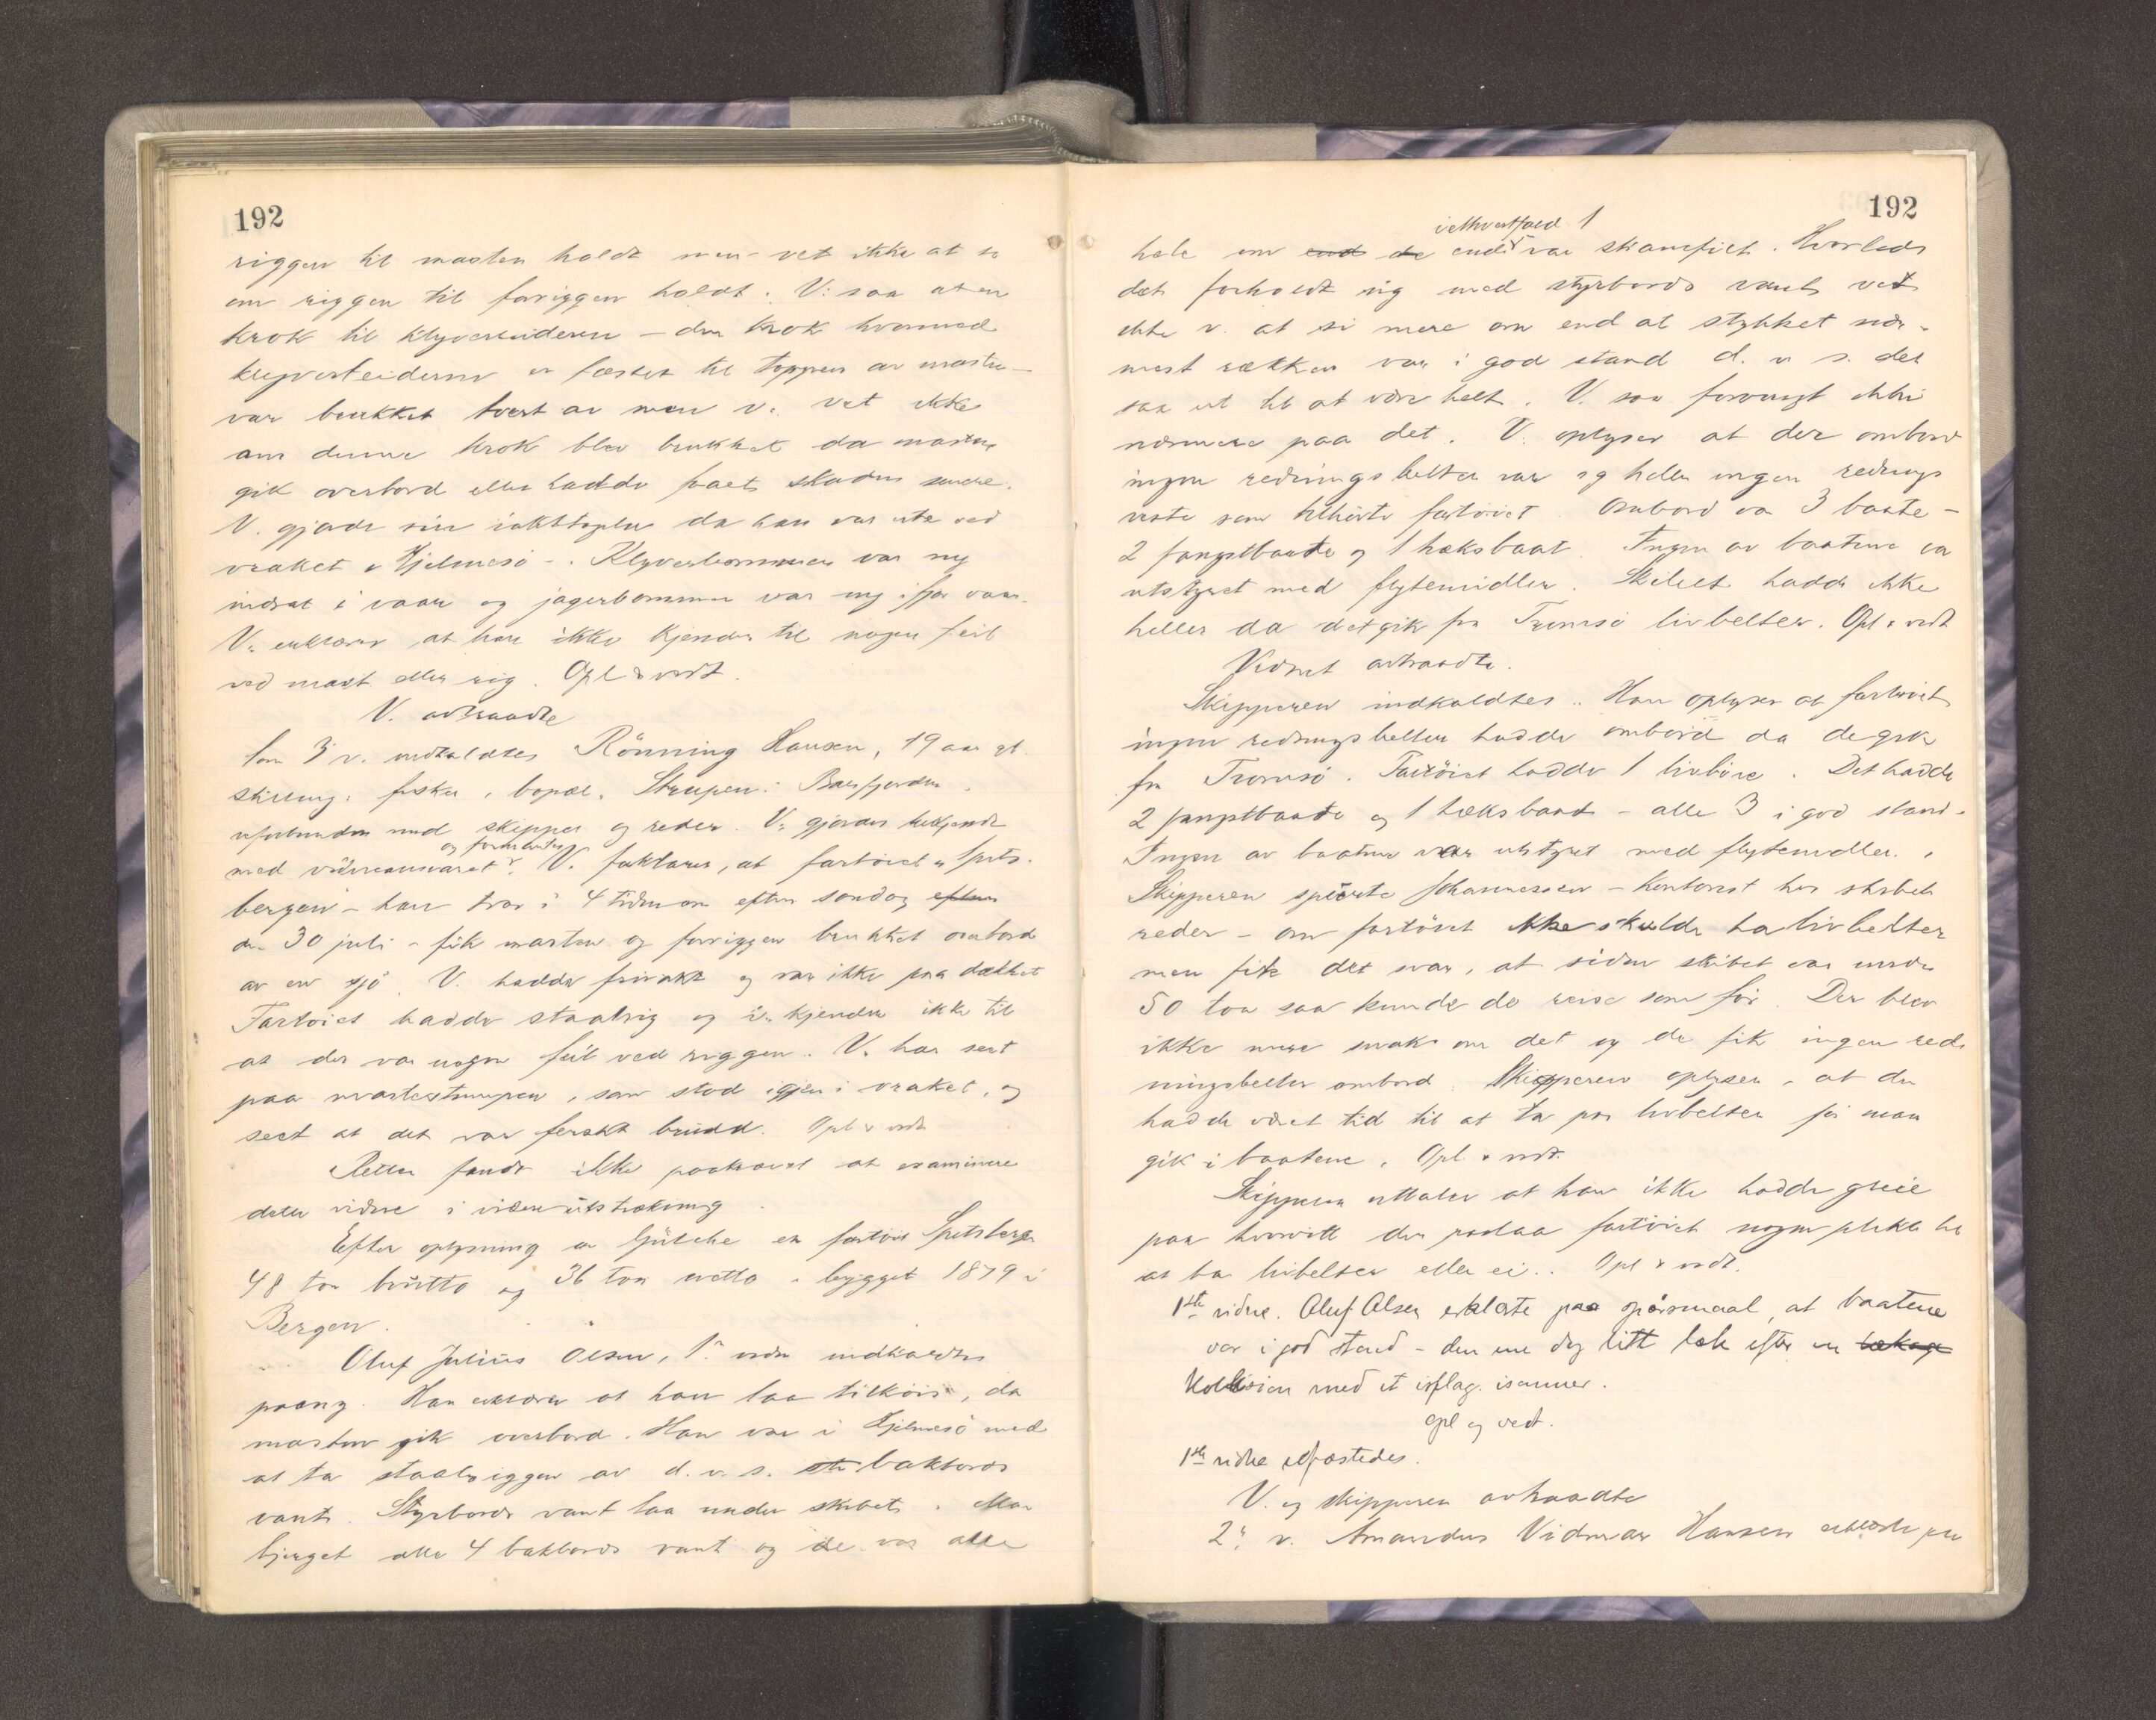 192
riggen til masten holdt men vet ikke at si
om riggen til forriggen holdt. V. saa at en
krok til klyverleideren – den krok hvormed
klyverleideren er fæstet til toppen av masten –
var brukket tvert av men v. vet ikke
om denne krok blev brukket da masten
gik overbord eller hadde faaet skaden senere.
V. gjorde sine iakttagelser da han var ute ved
vraket i Hjelmesö –. Klyverbommen var ny
indsat i vaar og jagerbommen var ny ifjor vaar.
V. erklærer at han ikke kjender til nogen feil
ved mast eller rig. Opl & vedt.
V. avtraadte
Som 3 v. indkaldtes Rönning Hansen, 19 aar gl.
stilling: fisker, bopæl: Straupen i Balsfjorden,
uforbunden med skipper og reder. V. gjordes bekjendt
og formantes
med vidneansvaret. V. forklarer, at fartöiet "Spits-
bergen – han tror i 4 tiden om efterm söndag efterm
den 30 juli – fik masten og forriggen brukket overbord
av en sjö. V. hadde frivakt og var ikke paa dækket
Fartöiet hadde staalrig og v. kjender ikke til
at der var nogen feil ved riggen. V. har seet
paa mastestumpen, som stod igjen i vraket, og
seet at det var ferskt brudd. Opl & vedt
Retten fandt ikke paakrævet at examinere
dette vidne i videre utstrækning.
Efter oplysning av Lütche er fartöiet Spitsbergen
48 ton brutto og 36 ton netto – bygget 1879 i
Bergen.
Oluf Julius Olsen, 1. vidne indkaldtes
paany. Han erklærer at han laa tilköis, da
masten gik overbord. Han var i Hjelmesö med
at ta staalriggen av d. v. s. bakbords
vant. Styrbords vant laa under skibet. Man
bjerget alle 4 bakbords vant og de var alle
192
ialhvertfald 1
hele om end de ende var skamfilt. Hvorledes
det forholdt sig med styrbords vant vet
ikke v. at si mere om end at stykket nær-
mest rækken var i god stand d. v. s. det
saa ut til at være helt. V. saa forövrigt ikke
nærmere paa det. V. oplyser at der ombord
ingen redningsbelter var og heller ingen rednings
veste som tilhörte fartöiet. Ombord var 3 baate –
2 fangstbaate og 1 hæksbaat. Ingen av baatene var
utstyret med flytemidler. Skibet hadde ikke
heller da det gik fra Tromsö livbelter. Opl & vedt
Vidnet avtraadte.
Skipperen indkaldtes. Han oplyser at fartöiet
ingen redningsbelter hadde ombord da de gik
fra Tromsö. Fartöiet hadde 1 livböie. Det hadde
2 fangstbaate og 1 hæksbaat – alle 3 i god stand.
Ingen av baatene var utstyret med flytemidler.
Skipperen spurte Johannessen – kontorist hos skibets
reder – om fartöiet ikke skulde ha livbelter
men fik det svar, at siden skibet var under
50 ton saa kunde de reise som för. Der blev
ikke mere snak om det og de fik ingen red-
ningsbelter ombord. Skipperen oplyser, at der
hadde været tid til at ta paa livbelter för man
gik i baatene. Opl. & vedt.
Skipperen uttaler at han ikke hadde greie
paa hvorvidt der paalaa fartöiet nogen plikt til
at ha livbelter eller ei. Opl & vedt.
1ste vidne. Oluf Olsen erklærte paa spörsmaal, at baatene
var i god stand – den ene dog litt læk efter en lækage
Kollision med et isflag isommer.
Opl og vedt.
1ste vidne edfæstedes.
V. og skipperen avtraadte
2. v. Amandus Vidmar Hansen erklærte paa